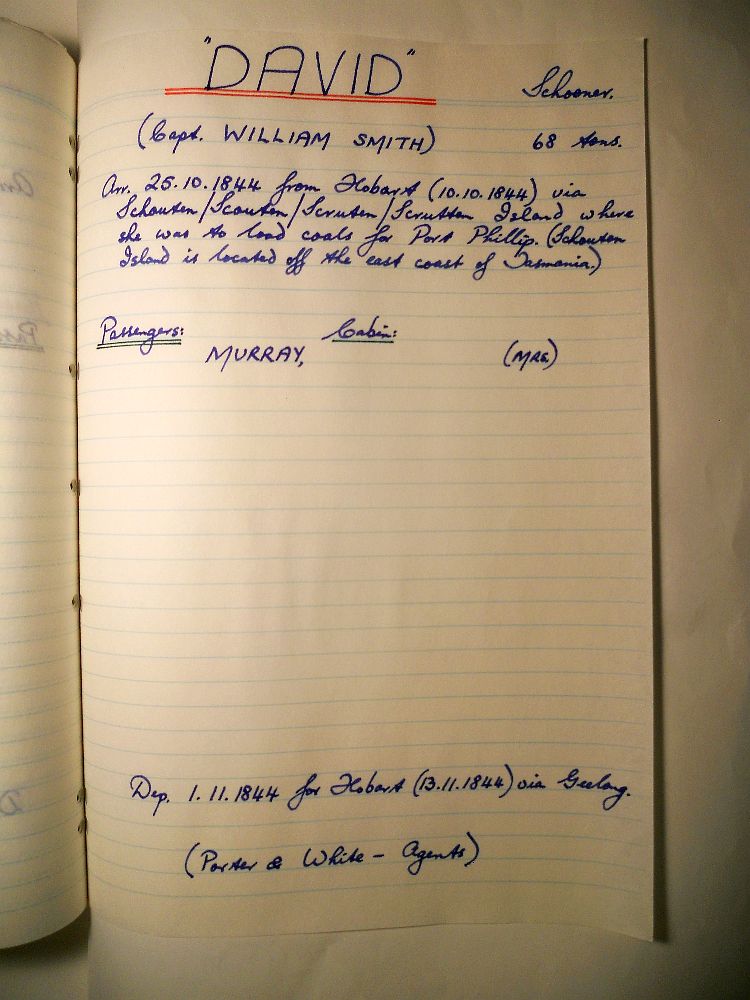 "DAVID"
Schooner.
(Capt. WILLIAM SMITH) 68 tons.
Arr. 25.10.1844 from Hobart (10.10.1844) via
Schouten/Scouten/Scruten/Scrutten Island where
she was to load coals for Port Phillip. (Schouten
Island is located off the east coast of Tasmania.)
Passengers: Cabin:
MURRAY, (MRS)
Dep. 1.11.1844 for Hobart (13.11.1844) via Geelong.
(Porter & White - Agents)